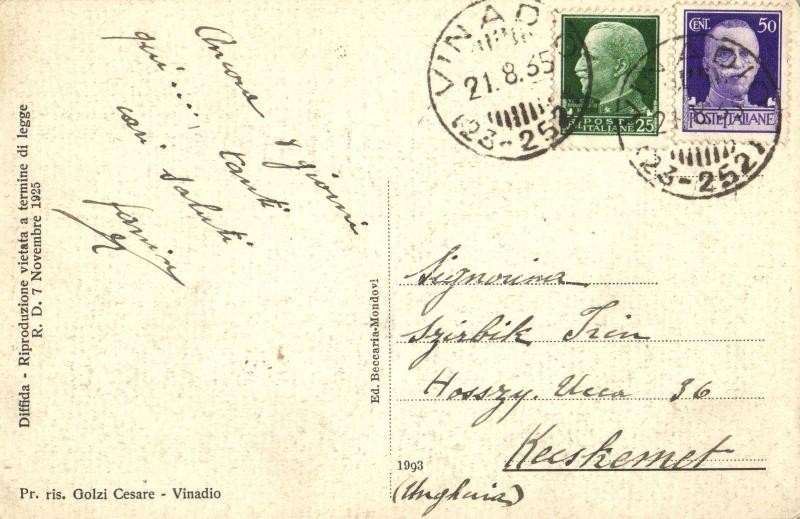 Ancora 8 giorni
qui .... tanti
cari saluti
Diffida - Riproduzione vietata a termine di legge
R. D. 7 Novembre 1925
Pr. ris. Golzi Cesare - Vinadio
Ed. Beccaria-Mondovì
VINADIO
21.8.35
(23-252)
POSTE
ITALIANE 25
CENT. 50
POSTE ITALIANE
VINADIO
21.8.
(23-252)
Signorina
Szirbik Irén
Hosszy. Ucca 36
Kecskemet
(Ungheria)
1993